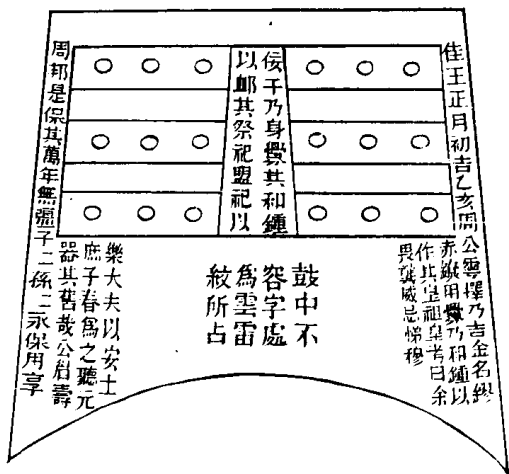 隹王正月初吉乙亥周公雩擇乃吉金名鏐
赤鏞用鑄乃和鍾以
作其皇祖皇考曰余
畏龔威忌悌穆
佞于乃身鑄其和鍾
以卹其祭祀盟祀以
鼓中不
容字處
為雲雷
紋所占
樂大夫以安士
庶子春為之聽元
器其舊哉公眉壽
周邦是保其萬年無疆子二孫二永保用享